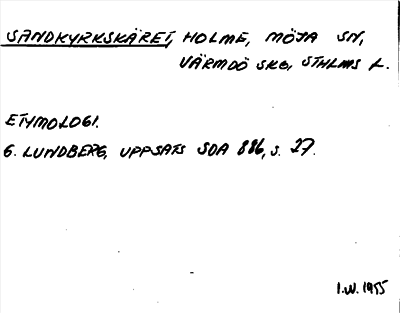 SANDKYRKSKÄRET, HOLME, MÖJA SN,
VÄRMDÖ SKG, STHLMS L.
ETYMOLOGI.
G. LUNDBERG, UPPSATS SOA 886, S. 27.
I.W. 1955